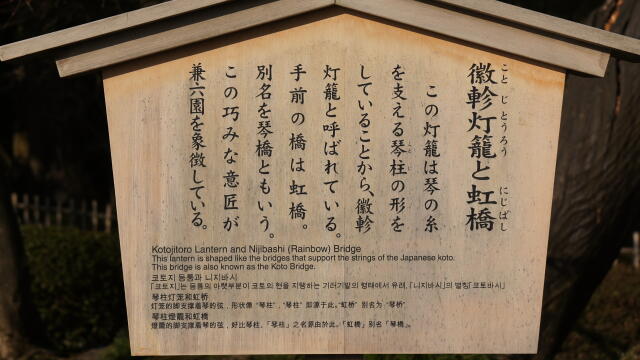 徽軫灯籠と虹橋
ことじとうろう
にじばし
この灯籠は琴の糸
を支える琴柱の形を
していることから、徽軫
灯籠と呼ばれている。
手前の橋は虹橋。
別名を琴橋ともいう。
この巧みな意匠が
兼六園を象徴している。
Kotojitoro Lantern and Nijibashi (Rainbow) Bridge
This lantern is shaped like the bridges that support the strings of the Japanese koto.
This bridge is also known as the Koto Bridge.
코토지 등롱과 니지바시
「코토지」는 등롱의 아랫부분이 코토의 현을 지탱하는 기러기발의 형태에서 유래,「니지바시」의 별칭「코토바시」
琴柱灯笼和虹桥
灯笼的脚支撑着琴的弦，形状像“琴柱”，“琴柱”即源于此。“虹桥” 别名为“琴桥”
琴柱燈籠和虹橋
燈籠的脚支撐着琴的弦，好比琴柱，「琴柱」之名源由於此。「虹橋」別名「琴橋」。